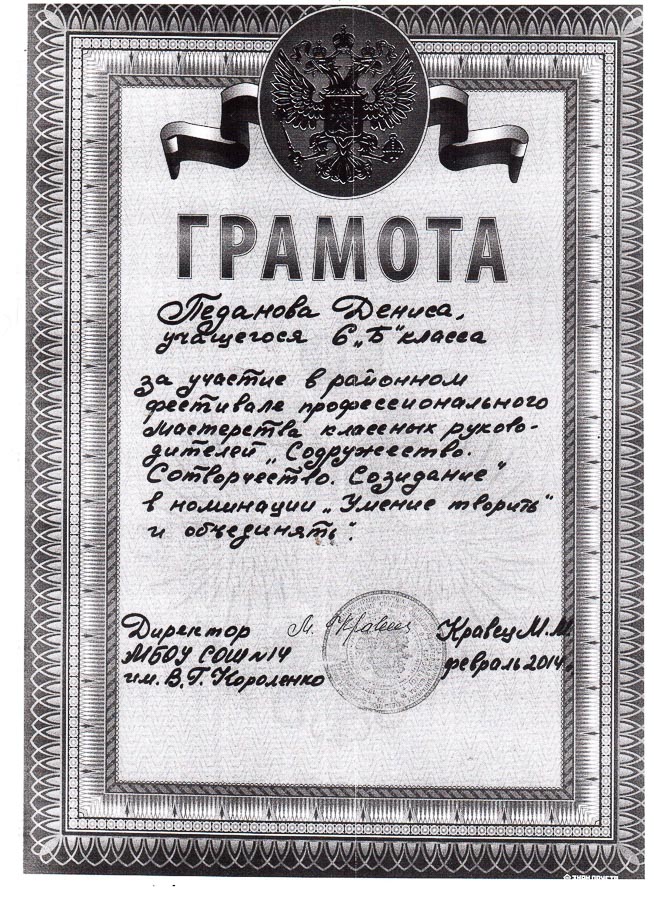 ГРАМОТА
Педанова Дениса,
учащегося 6 „Б" класса
за участие в районном
фестивале профессионального
мастерства классных руково-
дителей „Содружество.
Сотворчество. Созидание"
в номинации „Умение творить"
и объединять".
Директор М. Кравец Кравец М. М.
МБОУ СОШ №14 февраль 2014
им. В. Г. Короленко